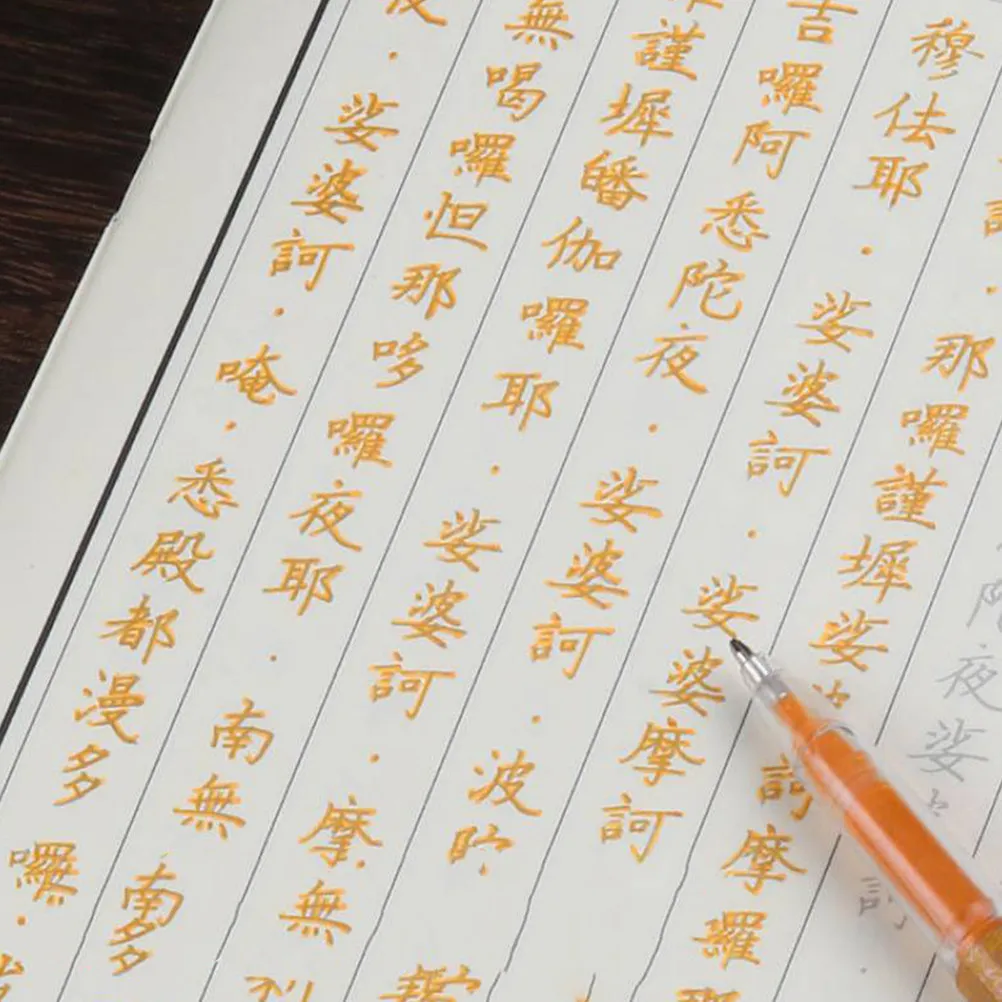 陀夜娑訶
那囉謹墀娑訶摩囉
穆佉耶．娑婆訶．娑婆摩訶
吉囉阿悉陀夜．娑婆訶．波
謹墀皤伽囉耶．娑婆訶．摩無
無喝囉怛那哆囉夜耶．南無南
娑婆訶．唵．悉殿都漫多囉．